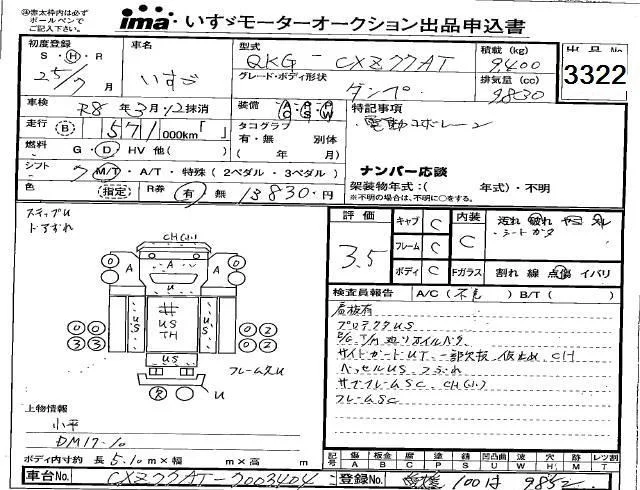 ㊟赤太枠内は必ず
ボールペンで
ご記入下さい。
ima いすゞモーターオークション出品申込書
初度登録
S・H・R
25/7月
車名
いすゞ
型式
QKG-CXZ77AT
グレード・ボディ形状
ダンプ
積載(kg)
9,400
排気量(cc)
9830
出品No
3322
車検
R8年3月 抹消
装備 AC PS PW
特記事項
・電動コボレーン
走行 B 571 000km「 」
タコグラフ
有・無 別体
( 年 月)
燃料 G・D・HV 他( )
シフト 7 M/T・A/T・特殊(2ペダル・3ペダル)
ナンバー応談
架装物年式:( 年式)・不明
※不明の場合は、不明に○をする。
色 (指定) R券 有 無 13830円
ステップU
ドアずれ
CH(小)
A A A
U
US US US
TH
US
フレーム欠U
U
評価
3.5
キャブ C
フレーム C
ボディ C
内装
C
汚れ 破れ ヤニ スレ
・シートガタ
Fガラス 割れ 線 点傷 イバリ
検査員報告 A/C(不良) B/T( )
プロテクタUS
サイドガードUT 一部欠損 仮止め CH
ベッセルUS つぶれ
サブフレームSC、CH(小)
フレームSC
上物情報
小平
DM17-10
ボディ内寸約 長5.10m×幅 m×高 m
記号 傷A 板金B 腐C 塗P 錆S 凹凸曲U 波W 穴H 跡M レツ割T
車台No. CXZ77AT-7003404
登録No. 愛媛 100 は 9852